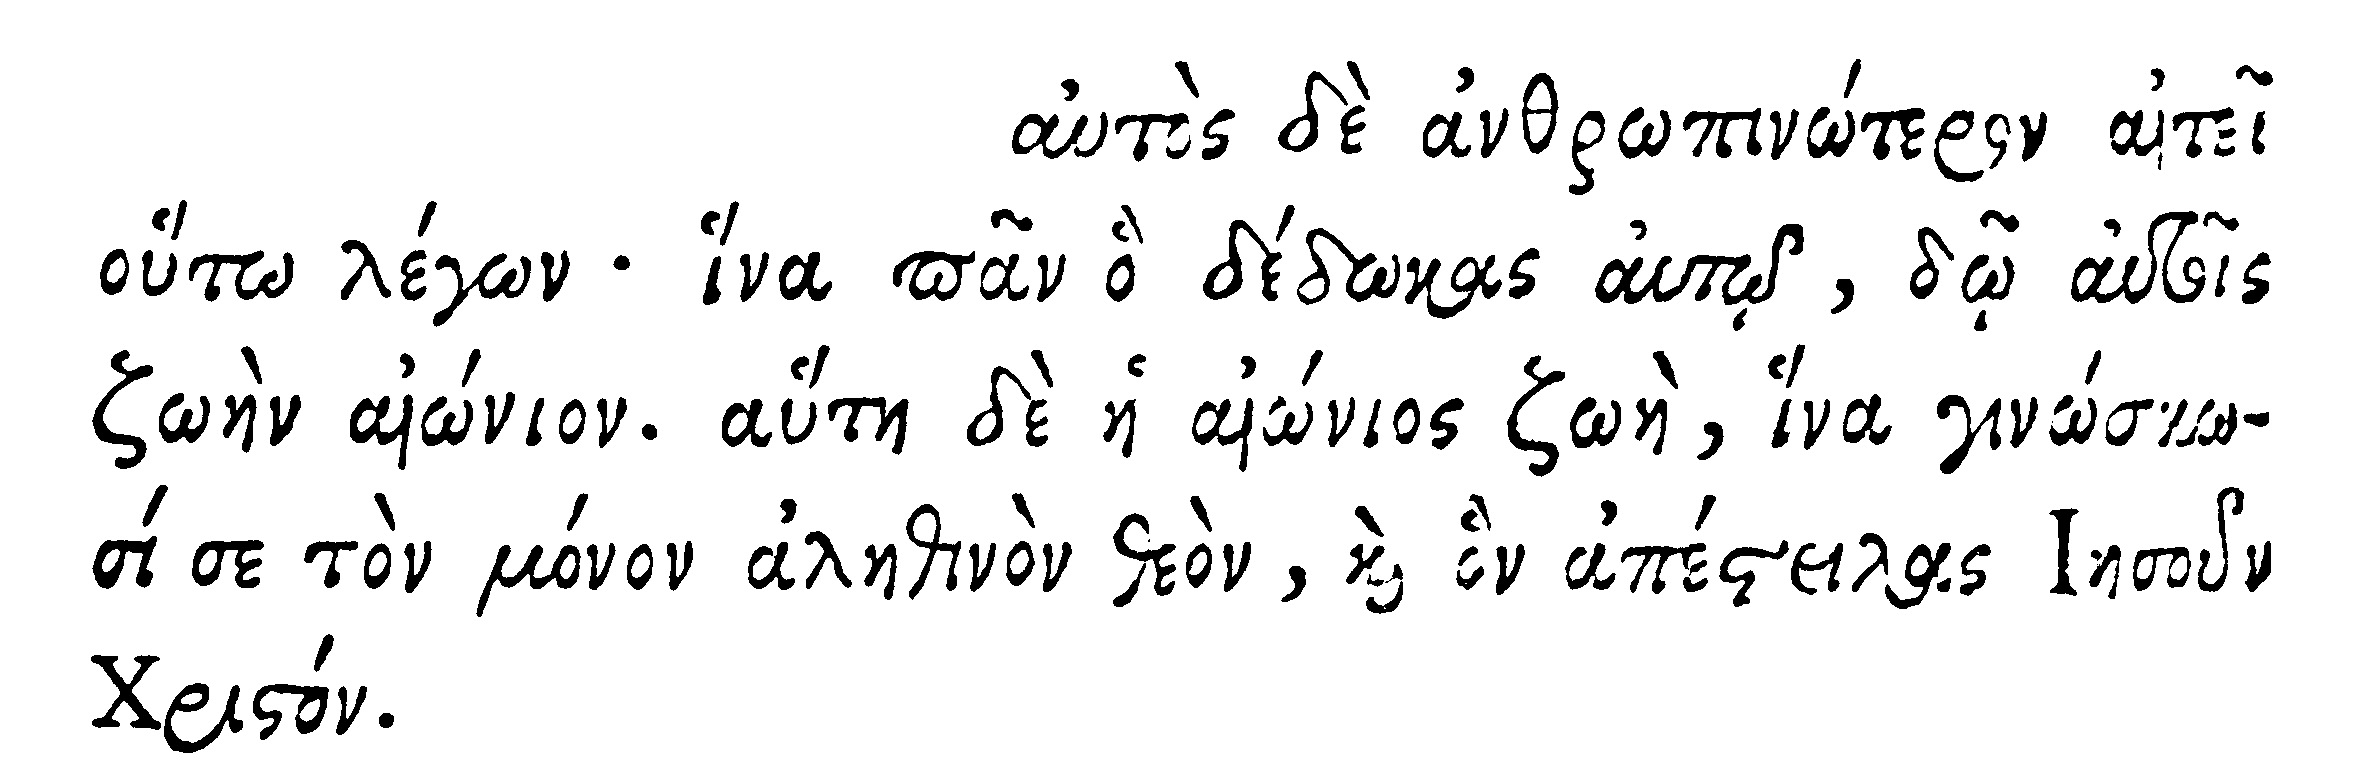 αὐτὸς δὲ ἀνθρωπινώτερον αἰτεῖ
οὕτω λέγων · ἵνα πᾶν ὃ δέδωκας αὐτῷ, δῷ αὐτοῖς
ζωὴν αἰώνιον. αὕτη δὲ ἡ αἰώνιος ζωὴ, ἵνα γινώσκω-
σί σε τὸν μόνον ἀληθινὸν θεὸν, καὶ ὃν ἀπέστειλας Ιησοῦν
Χριστόν.